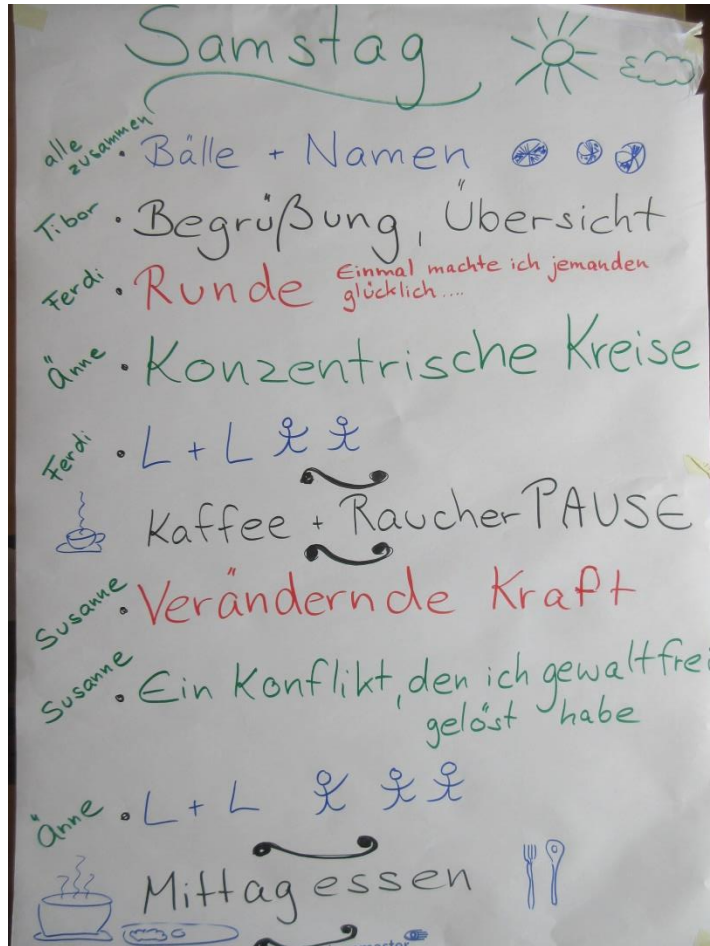 Samstag
alle zusammen • Bälle + Namen
Tibor • Begrüßung, Übersicht
Ferdi • Runde Einmal machte ich jemanden
glücklich....
Änne • Konzentrische Kreise
Ferdi • L + L
Kaffee + RaucherPAUSE
Susanne • Verändernde Kraft
Susanne • Ein Konflikt, den ich gewaltfrei
gelöst habe
Änne • L + L
Mittagessen